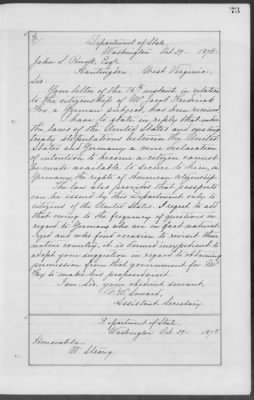 73
Department of State,
Washington Oct. 29 1878.
John S. Esq.
Huntington, West Virginia.
Sir
Your letter of the 16th instant in relation
to the citizenship of Mr. Jacob Frederick
Fox a German subject, has been received.
I have to state in reply that under
the laws of the United States and existing
treaty stipulations between the United
States and Germany a mere declaration
of intention to become a citizen cannot
be made available to secure to him, in
Germany, the rights of American citizenship.
The law also provides that passports
can be issued by this Department only to
citizens of the United States. I regret to add
that owing to the frequency of questions in
regard to Germans who are in fact natural-
ized and who find occasion to revisit their
native country, it is deemed inexpedient to
adopt your suggestion in regard to obtaining
permission from that government for Mr.
Fox to make his
I am Sir, your obedient servant
F. W. Seward,
Assistant Secretary
Department of State,
Washington Oct. 29 1878
Honorable
W. Strong